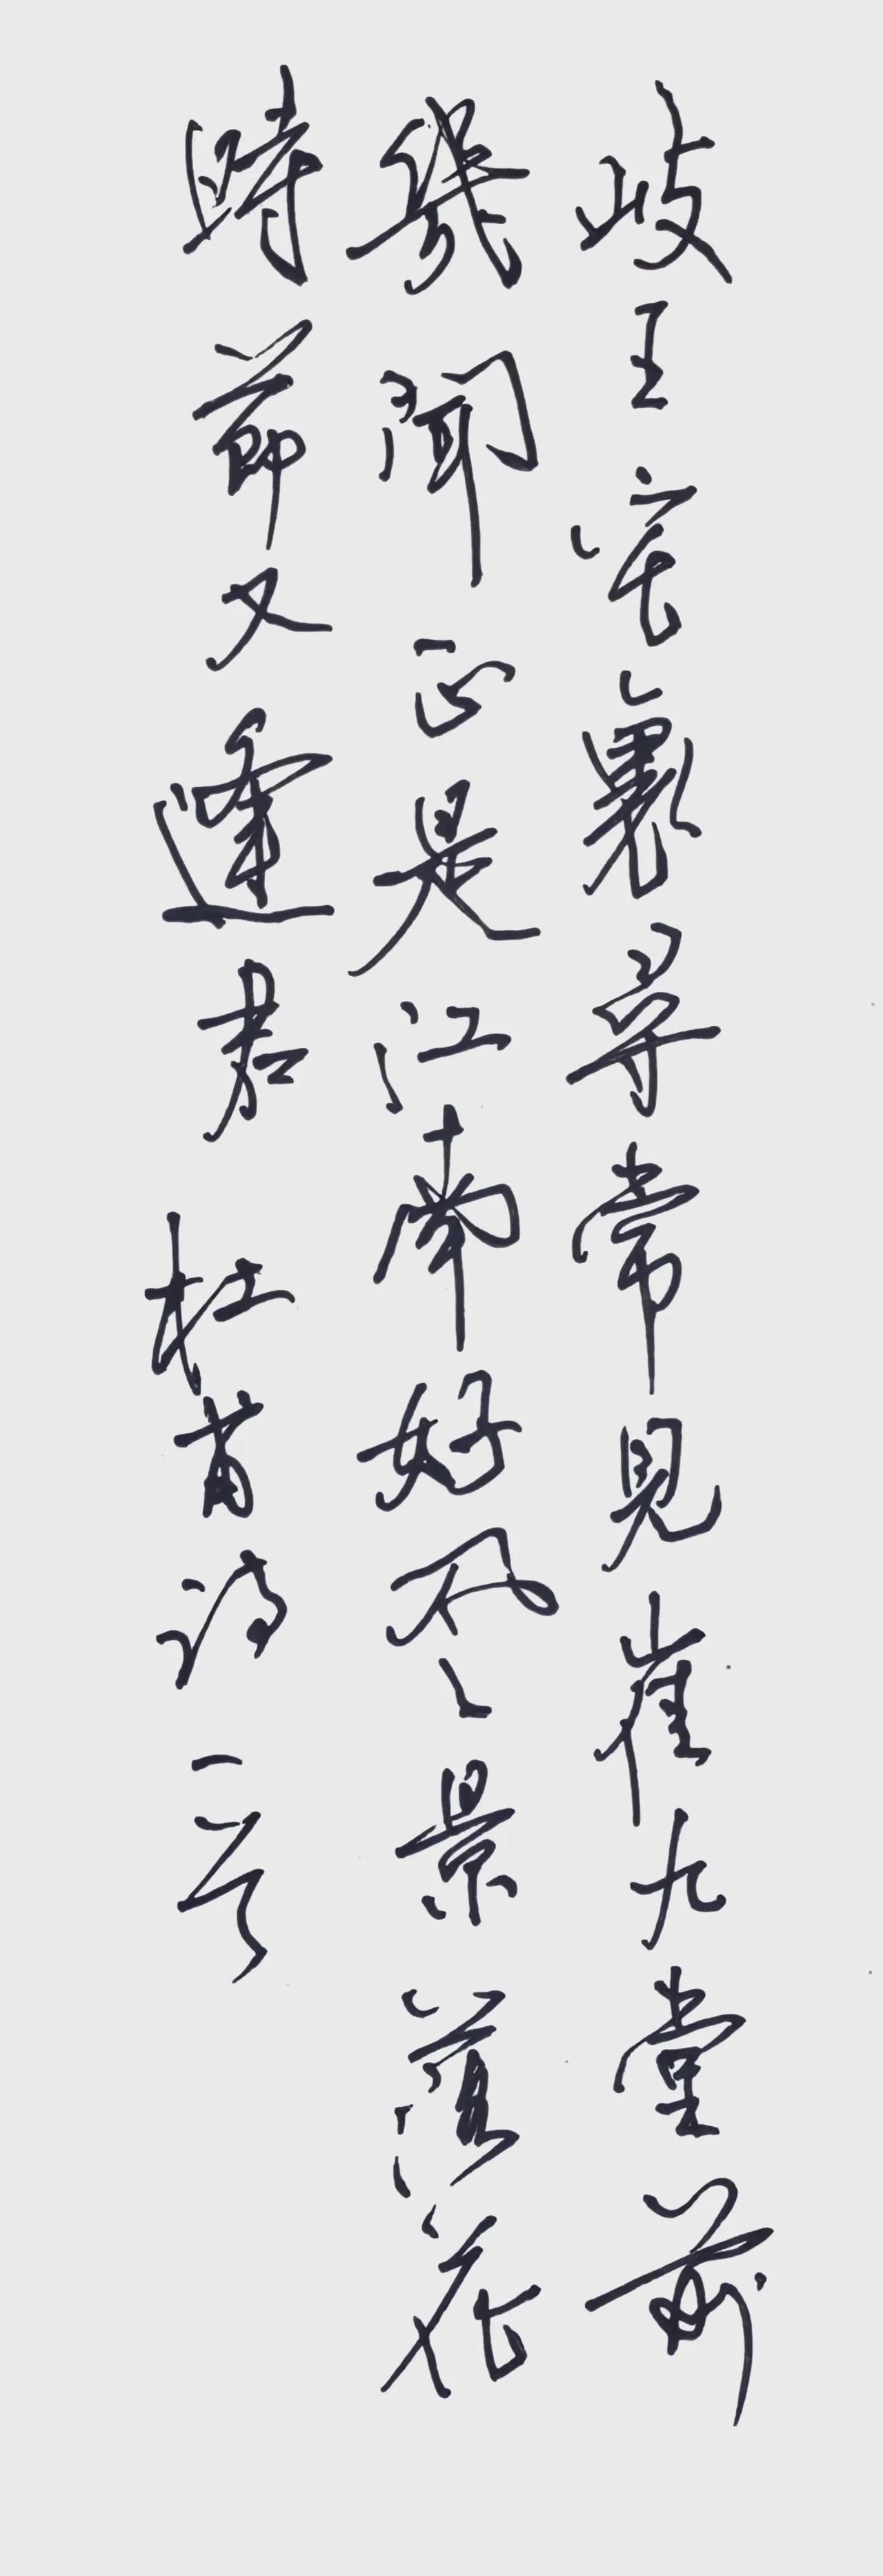 岐王宅裏尋常見崔九堂前
幾聞正是江南好风景落花
時節又逢君 杜甫詩一首